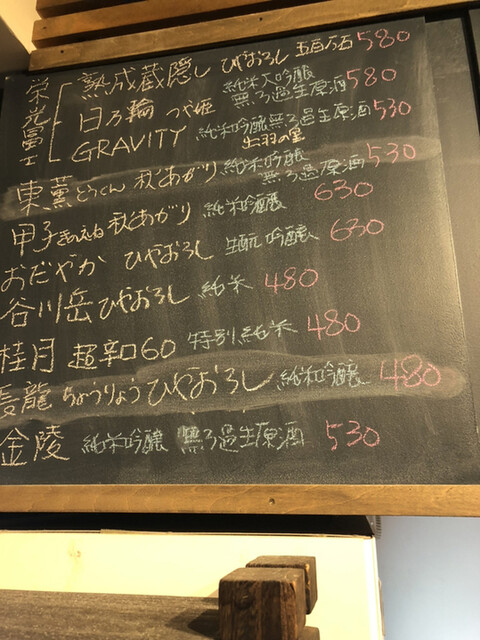 栄光冨士
熟成蔵隠し ひやおろし 五百万石 580
日乃輪 つや姫 純米大吟醸 無ろ過生原酒 580
GRAVITY 純米吟醸無ろ過生原酒 出羽の里 530
東薫とうくん 秋あがり 純米吟醸 無ろ過生原酒 530
甲子きのえね 秋あがり 純米吟醸 630
おだやか ひやおろし 生酛吟醸 630
谷川岳 ひやおろし 純米 480
桂月 超辛口60 特別純米 480
長龍 ちょうりょう ひやおろし 純米吟醸 480
金陵 純米吟醸 無ろ過生原酒 530